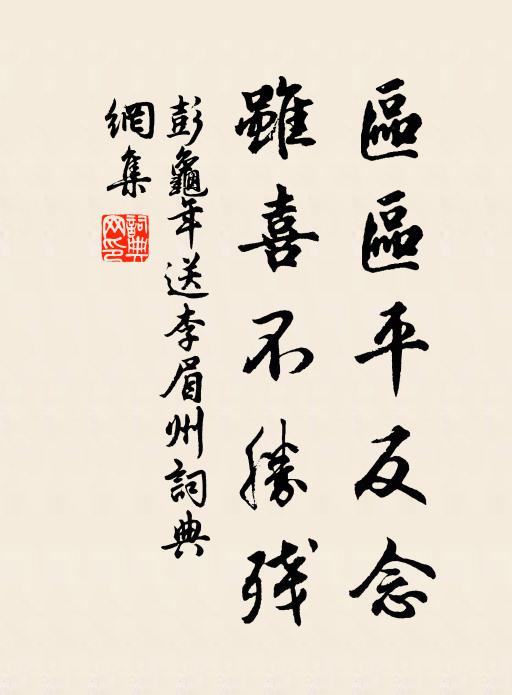 區區平反念
雖喜不勝殘
彭龜年送李眉州詞典
網集
詞典網印